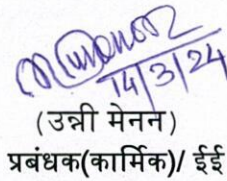 14/3/24
(उन्नी मेनन)
प्रबंधक(कार्मिक)/ ईई